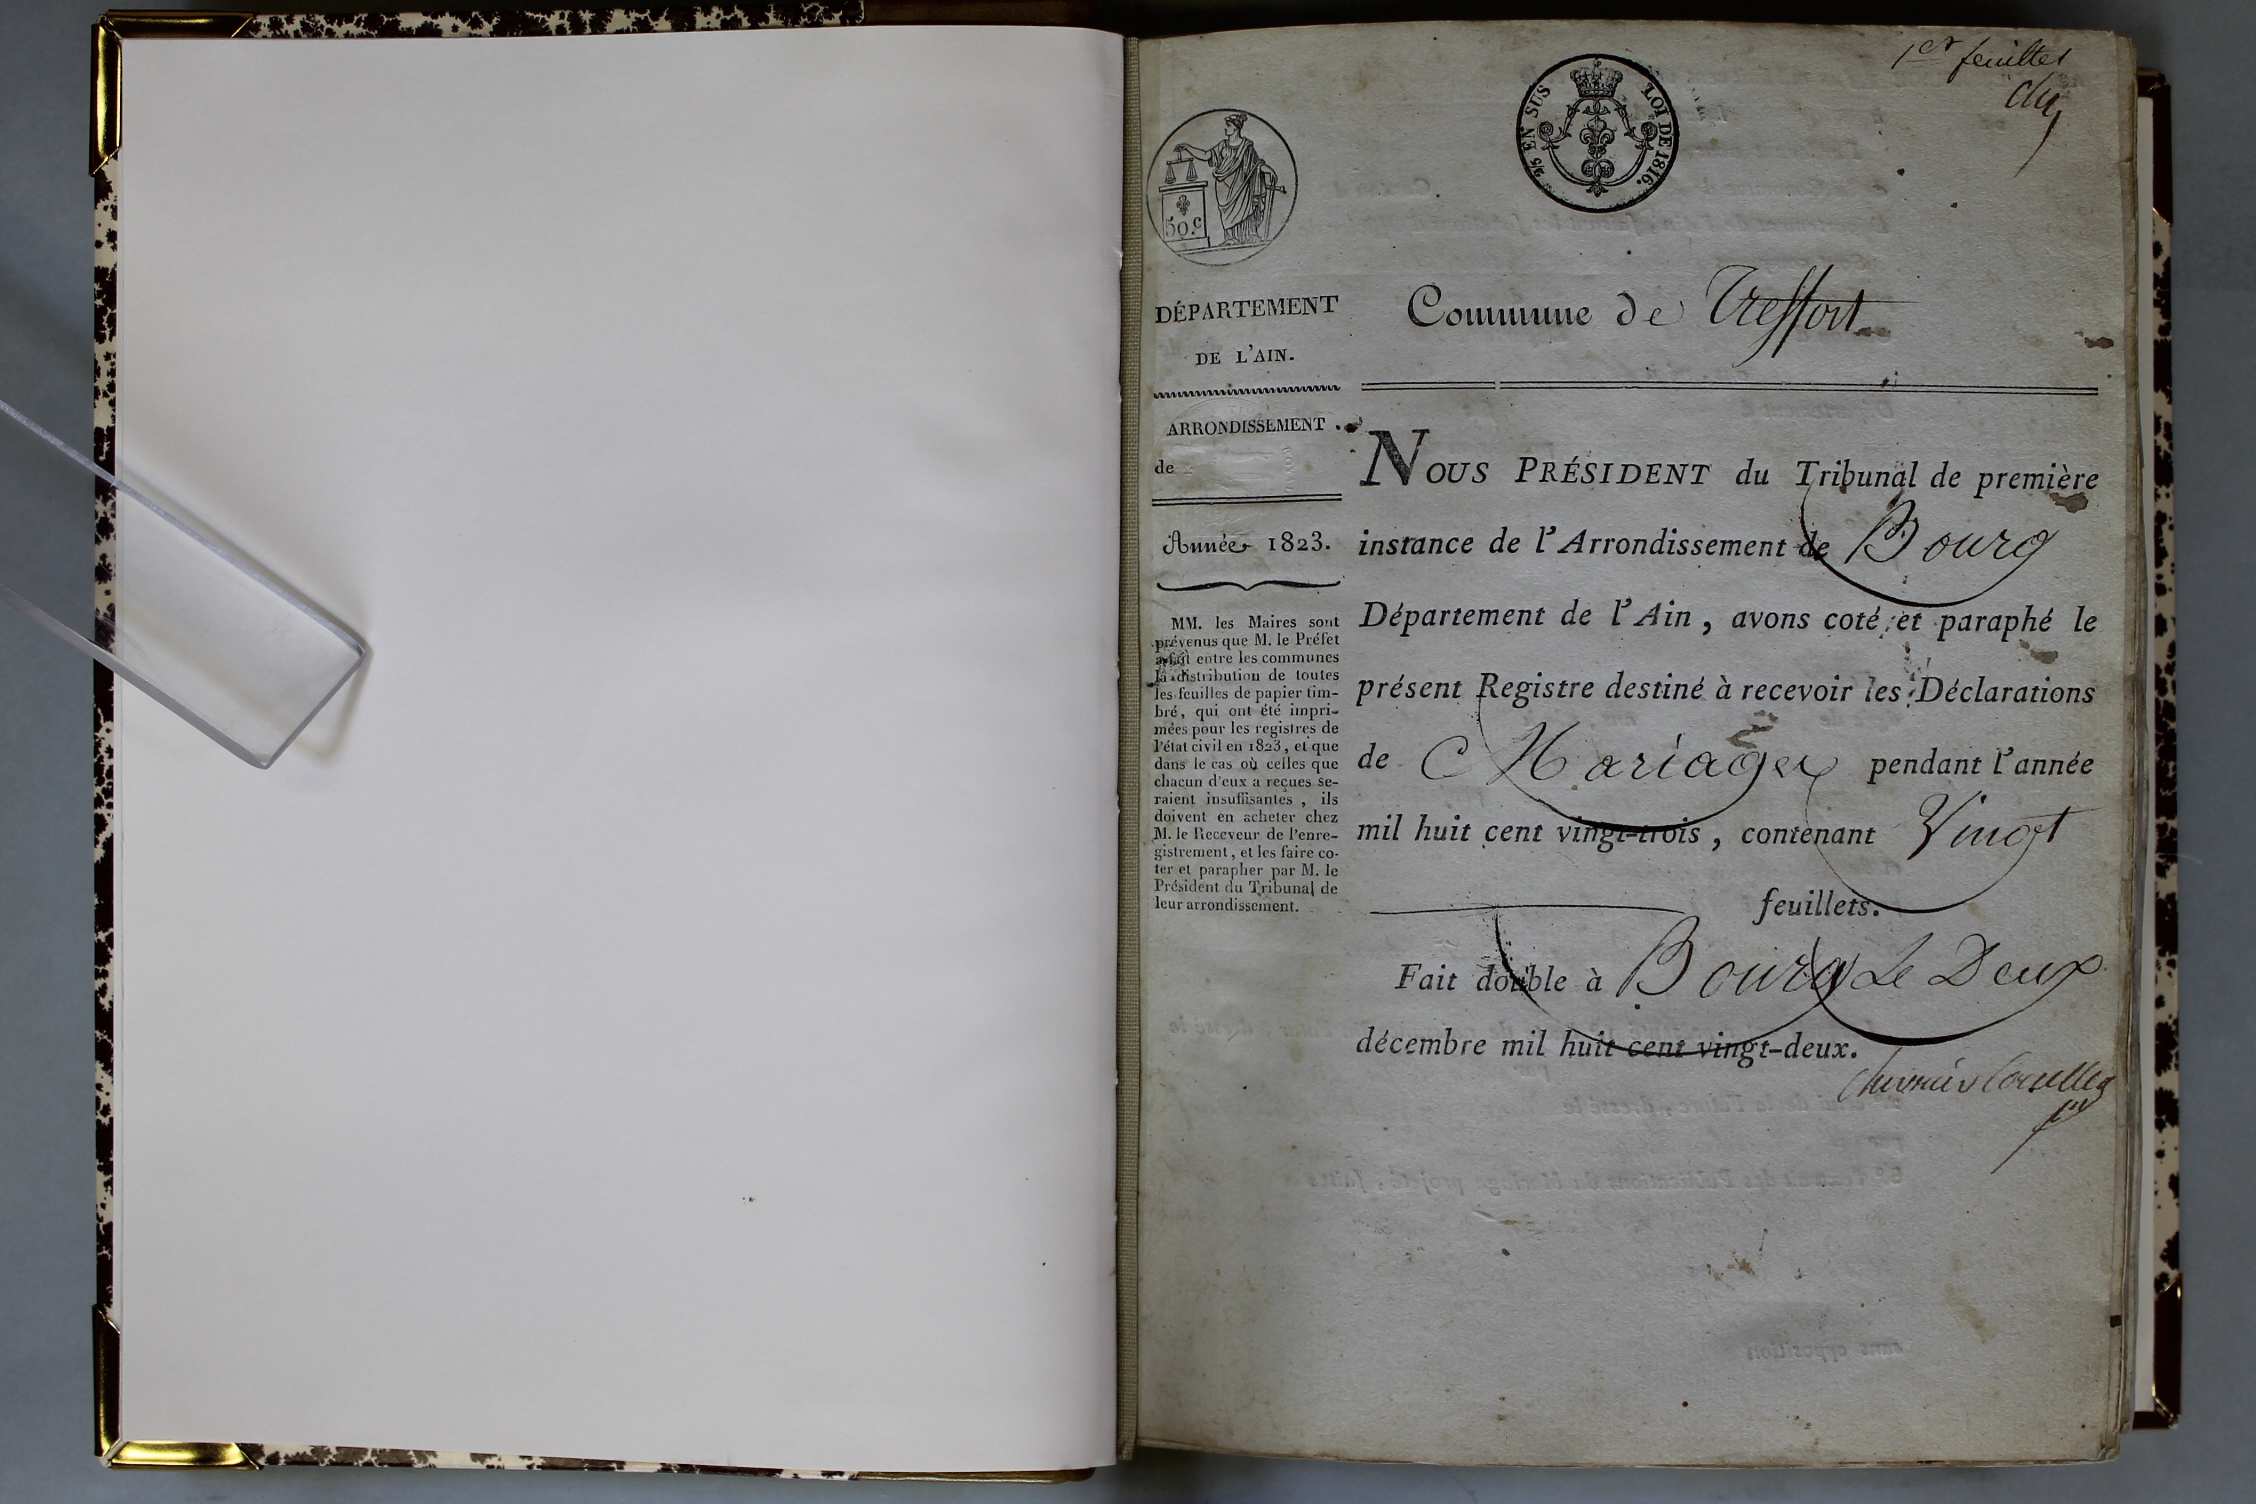 1er feuillet
2/5 EN SUS
LOI DE 1816.
50.c
DÉPARTEMENT
DE L'AIN.
ARRONDISSEMENT
de
Année 1823.
MM. les Maires sont
prévenus que M. le Préfet
a fait entre les communes
la distribution de toutes
les feuilles de papier tim-
bré, qui ont été impri-
mées pour les registres de
l'état civil en 1823, et que
dans le cas où celles que
chacun d'eux a reçues se-
raient insuffisantes, ils
doivent en acheter chez
M. le Receveur de l'enre-
gistrement, et les faire co-
ter et parapher par M. le
Président du Tribunal de
leur arrondissement.
Commune de Treffort
NOUS PRÉSIDENT du Tribunal de première
instance de l'Arrondissement de Bourg
Département de l'Ain, avons coté et paraphé le
présent Registre destiné à recevoir les Déclarations
de Mariages pendant l'année
mil huit cent vingt-trois, contenant Vingt
feuillets.
Fait double à Bourg Le Deux
décembre mil huit cent vingt-deux.